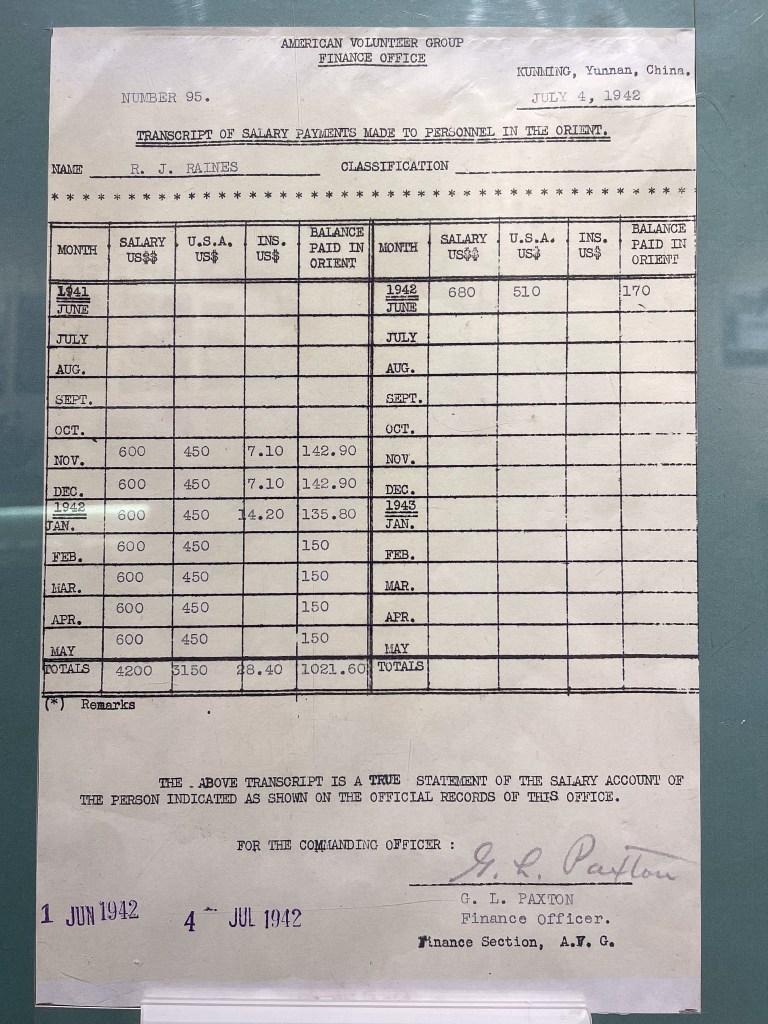 AMERICAN VOLUNTEER GROUP
FINANCE OFFICE
KUNMING, Yunnan, China.
NUMBER 95.
JULY 4, 1942
TRANSCRIPT OF SALARY PAYMENTS MADE TO PERSONNEL IN THE ORIENT.
NAME R. J. RAINES CLASSIFICATION
* * * * * * * * * * * * * * * * * * * * * * * * * * * * * * * * * * * * * * *
MONTH SALARY US$$ U.S.A. US$ INS. US$ BALANCE PAID IN ORIENT MONTH SALARY US$$ U.S.A. US$ INS. US$ BALANCE PAID IN ORIENT
1941 1942 680 510 170
JUNE JUNE
JULY JULY
AUG. AUG.
SEPT. SEPT.
OCT. OCT.
NOV. 600 450 7.10 142.90 NOV.
DEC. 600 450 7.10 142.90 DEC.
1942 1943
JAN. 600 450 14.20 135.80 JAN.
FEB. 600 450 150 FEB.
MAR. 600 450 150 MAR.
APR. 600 450 150 APR.
MAY 600 450 150 MAY
TOTALS 4200 3150 28.40 1021.60 TOTALS
(*) Remarks
THE ABOVE TRANSCRIPT IS A TRUE STATEMENT OF THE SALARY ACCOUNT OF
THE PERSON INDICATED AS SHOWN ON THE OFFICIAL RECORDS OF THIS OFFICE.
FOR THE COMMANDING OFFICER :
G. L. Paxton
G. L. PAXTON
Finance Officer.
Finance Section, A.V. G.
1 JUN 1942
4 JUL 1942